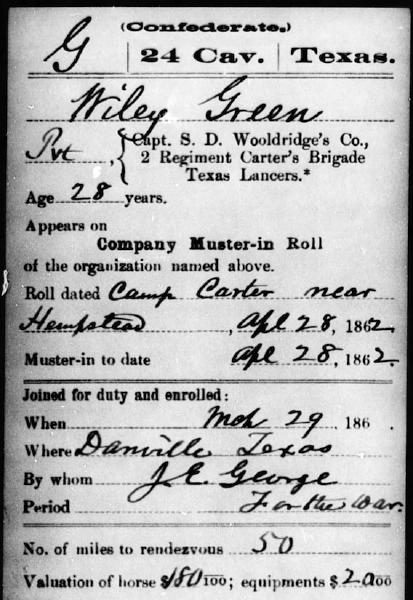 (Confederate.)
G | 24 Cav. | Texas.
Wiley Green
Pvt, { Capt. S. D. Wooldridge's Co.,
2 Regiment Carter's Brigade
Texas Lancers.*
Age 28 years.
Appears on
Company Muster-in Roll
of the organization named above.
Roll dated Camp Carter near
Hempstead, Apl 28, 1862.
Muster-in to date Apl 28, 1862.
Joined for duty and enrolled:
When Mch 29, 186 .
Where Danville Texas
By whom J. E. George
Period For the war.
No. of miles to rendezvous 50
Valuation of horse $180 100; equipments $20 00